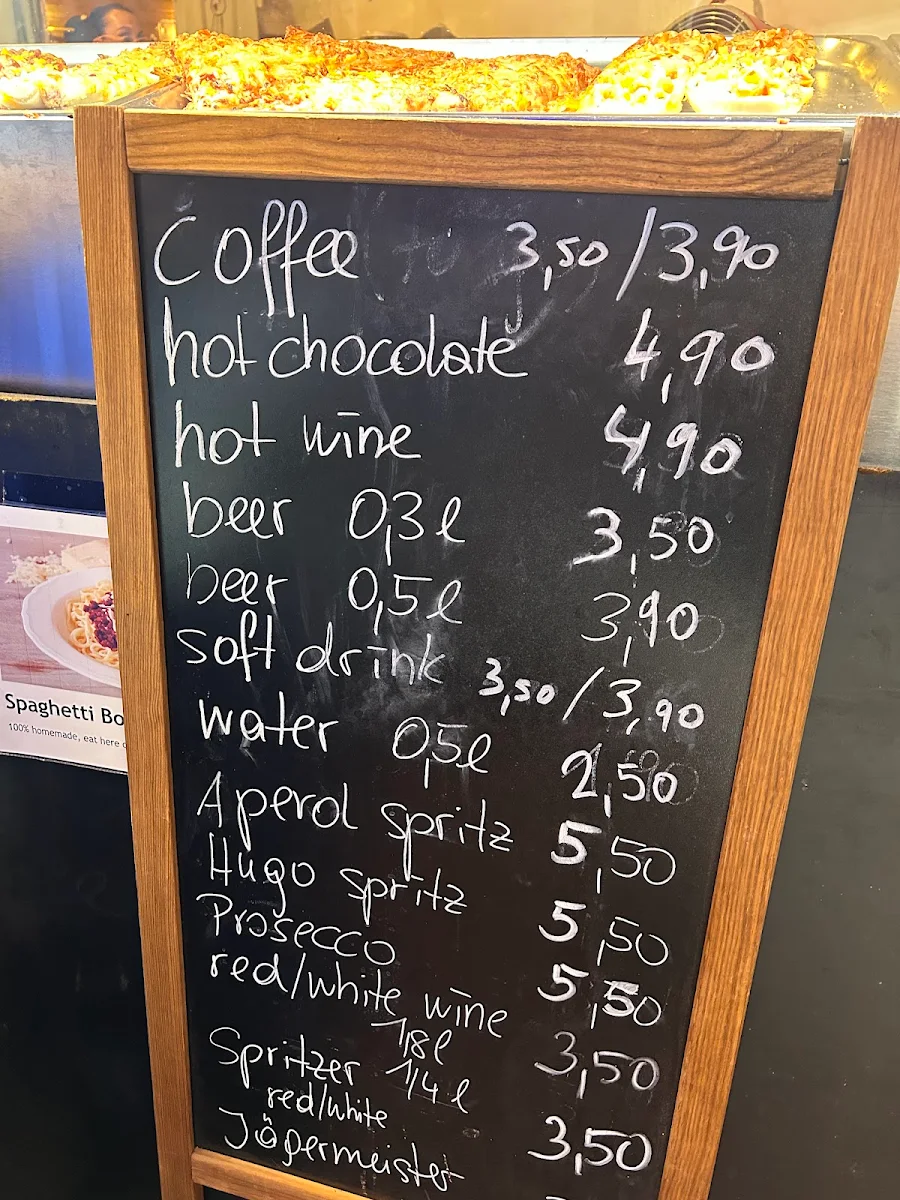 Coffee 3,50/3,90
hot chocolate 4,90
hot wine 4,90
beer 0,3l 3,50
beer 0,5l 3,90
soft drink 3,50/3,90
water 0,5l 2,50
Aperol spritz 5,50
Hugo spritz 5,50
Prosecco 5,50
red/white wine
1/8l 3,50
Spritzer 1/4l
red/white 3,50
Jägermeister
Spaghetti Bo
100% homemade, eat here